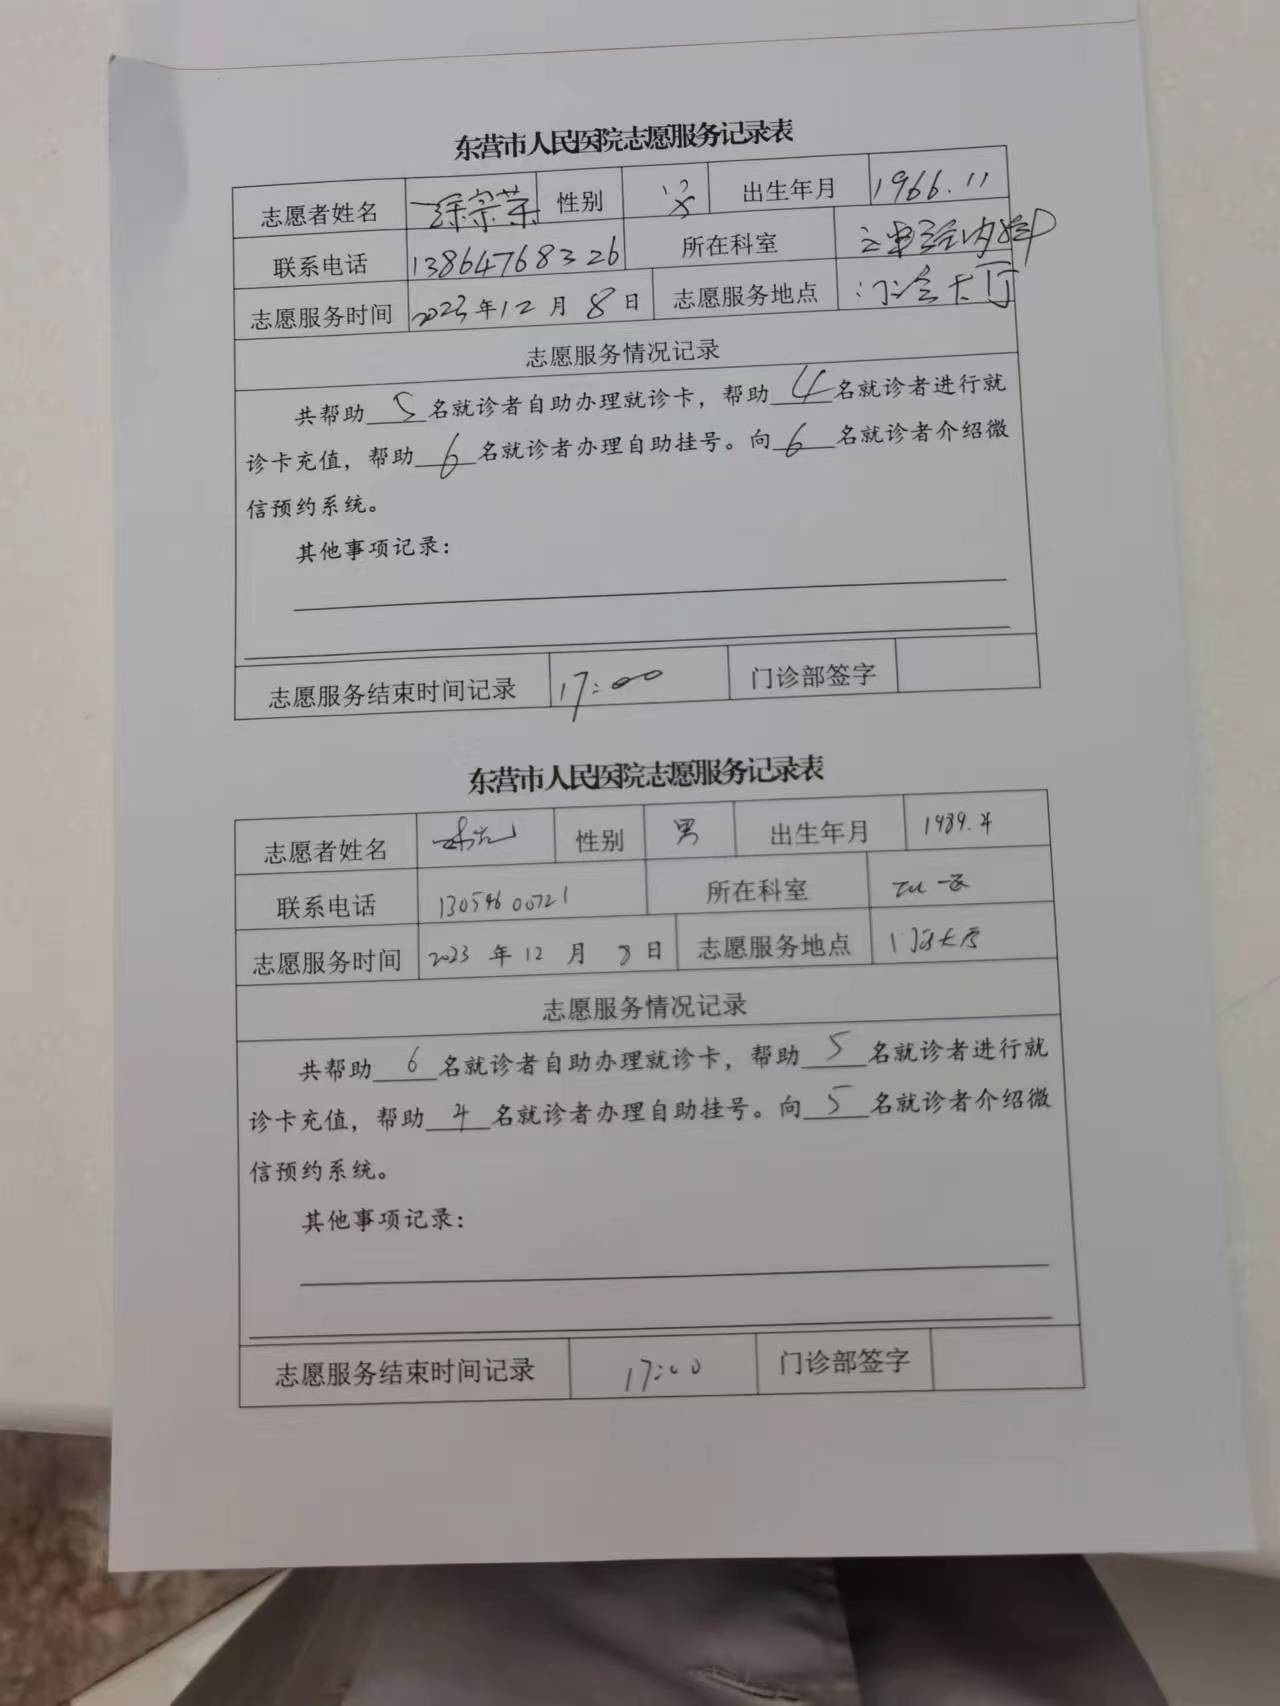 东营市人民医院志愿服务记录表
志愿者姓名 性别 出生年月 1966.11
联系电话 13864768326 所在科室 神经内科
志愿服务时间 2023年12月8日 志愿服务地点 门诊大厅
志愿服务情况记录
共帮助5名就诊者自助办理就诊卡，帮助4名就诊者进行就
诊卡充值，帮助6名就诊者办理自助挂号。向6名就诊者介绍微
信预约系统。
其他事项记录：
志愿服务结束时间记录 17:00 门诊部签字
东营市人民医院志愿服务记录表
志愿者姓名 性别 男 出生年月 1989.4
联系电话 13054600721 所在科室
志愿服务时间 2023年12月8日 志愿服务地点 门诊大厅
志愿服务情况记录
共帮助6名就诊者自助办理就诊卡，帮助5名就诊者进行就
诊卡充值，帮助4名就诊者办理自助挂号。向5名就诊者介绍微
信预约系统。
其他事项记录：
志愿服务结束时间记录 17:00 门诊部签字